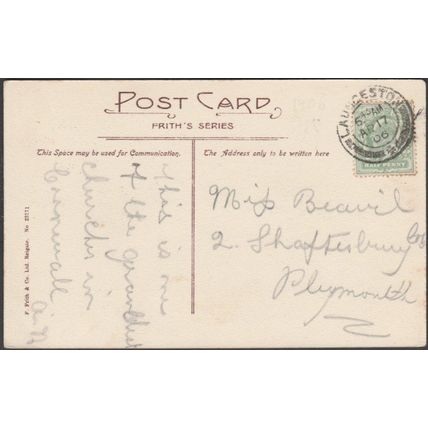 POST CARD
FRITH'S SERIES
This Space may be used for Communication.
The Address only to be written here
LAUNCESTON
AP 17
06
HALF PENNY
This is one
of the grandest
churches in
Cornwall.
a.B
Miss Beavil
2. Shaftesbury
Plymouth
F. Frith & Co. Ltd. Reigate. No 23111